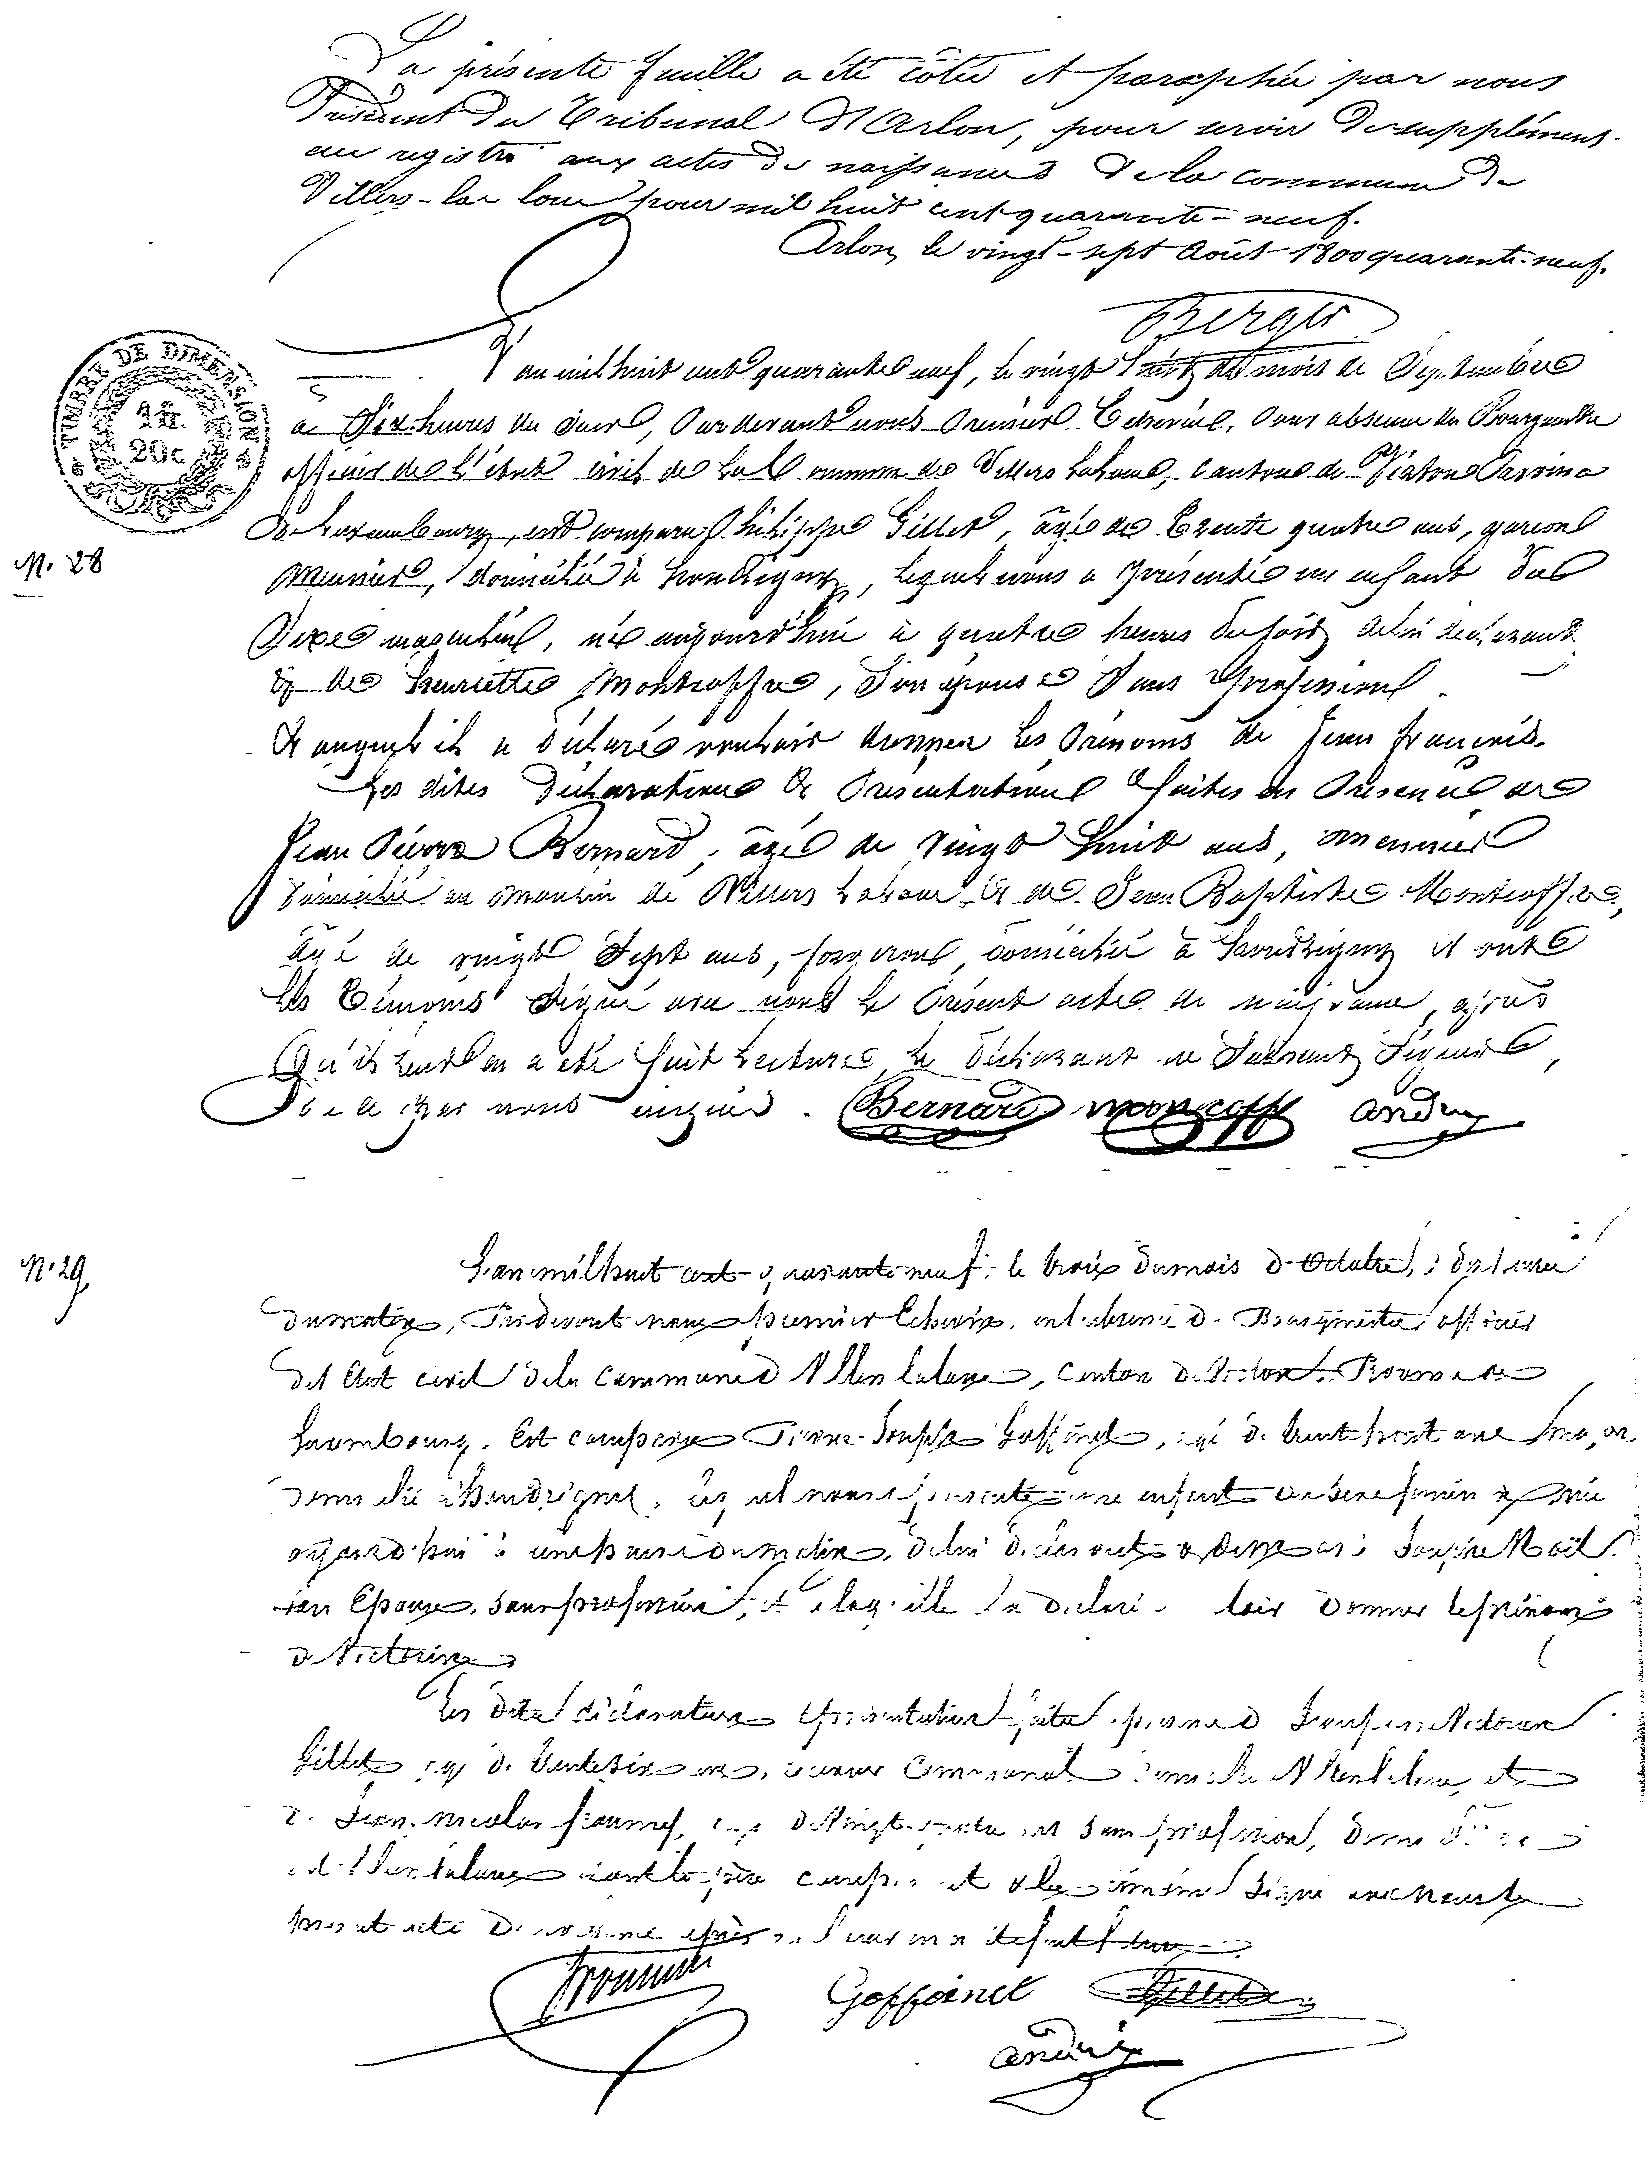 La présente feuille a été côtée et paraphée par nous
Président du Tribunal d'Arlon, pour servir de supplément
au registre aux actes de naissances de la commune de
Villers-la-loue pour mil huit cent quarante-neuf.
Arlon, le vingt-sept Août 1800 quarante-neuf.
Berger
TIMBRE DE DIMENSION
20 c
L'an mil huit cent quarante neuf, le vingt du mois de Septembre
à Six heures du Soir, Pardevant nous Premier Echevin, Pour absence du Bourgmestre
officier de l'état civil de la Commune de Villers laloue, Canton de Virton Province
de Luxembourg, est comparu Philippe Gillet, âgé de Trente quatre ans, garçon
N. 28
Meunier, domicilié à houdrigny, lequel nous a présenté un enfant du
Sexe masculin, né aujourd'hui à quatre heures du soir de lui déclarant
& de henriette Montcoffre, Son épouse Sans Profession.
& auquel il a déclaré vouloir donner les Prénoms de Jean françois.
Les dites Déclaration & Présentation faites en Présence de
Jean Pierre Bernard, âgé de Vingt huit ans, meunier
Domicilié au moulin de Villers laloue & de Jean Baptiste Montcoffre,
âgé de vingt Sept ans, forgeron, domicilié à houdrigny et ont
les Témoins Signé avec nous le Présent acte de naissance, après
Qu'il leur en a été fait Lecture, le Déclarant ne Sachant Signer,
de ce par nous enquis. Bernard moncoffre andrin
N. 29
L'an mil huit cent quarante neuf, le trois du mois d'Octobre,
du matin, Pardevant nous premier Echevin, en l'absence du Bourgmestre officier
de l'Etat civil de la Commune de Villers laloue, Canton de Virton, Province de
Luxembourg. Est comparu Pierre Joseph Goffinet, âgé de trente huit ans
domicilié à houdrigny, lequel nous a présenté une enfant du sexe féminin née
aujourd'hui à une heure du matin, de lui déclarant & de Josephe Noël
son Epouse, sans profession, et à laquelle il a déclaré vouloir donner le prénom
de Victorine
Les dites déclaration & présentation faites en présence de
Gillet, âgé de trente six ans, communal domicilié à Villers laloue, et
de Jean Nicolas âgé de Vingt ans sans profession, domicilié
à Villers laloue et ont le père comparu et les témoins Signé avec nous le
présent acte de naissance après qu'il leur en a été fait lecture
Goffoinet Gillet
andrin